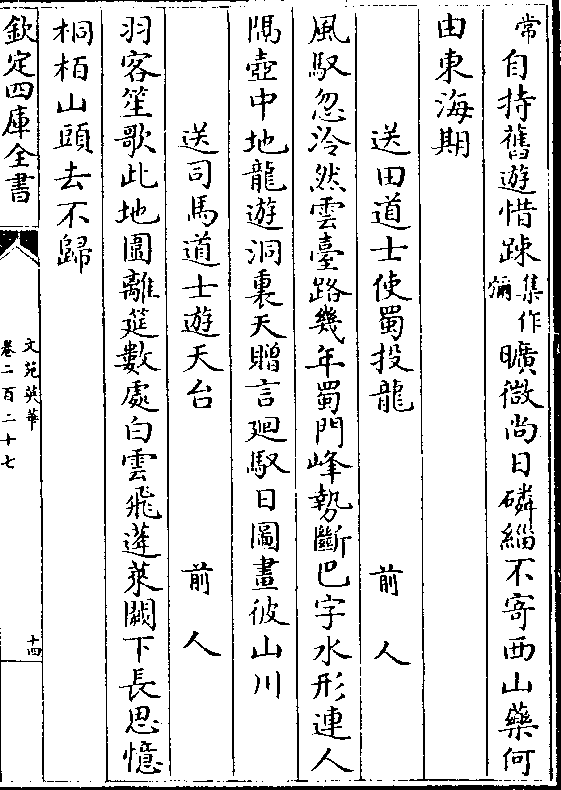 常自持舊遊惜踈集作彌曠微尚日磷緇不寄西山藥何
由東海期
送田道士使蜀投龍 前人
風馭忽泠然雲臺路幾年蜀門峰勢斷巴字水形連人
隔壺中地龍遊洞裏天贈言廻馭日圖畫彼山川
送司馬道士遊天台 前人
羽客笙歌此地圖離筵數處白雲飛蓬萊闕下長思憶
桐栢山頭去不歸
欽定四庫全書
文苑英華
卷二百二十七
十四